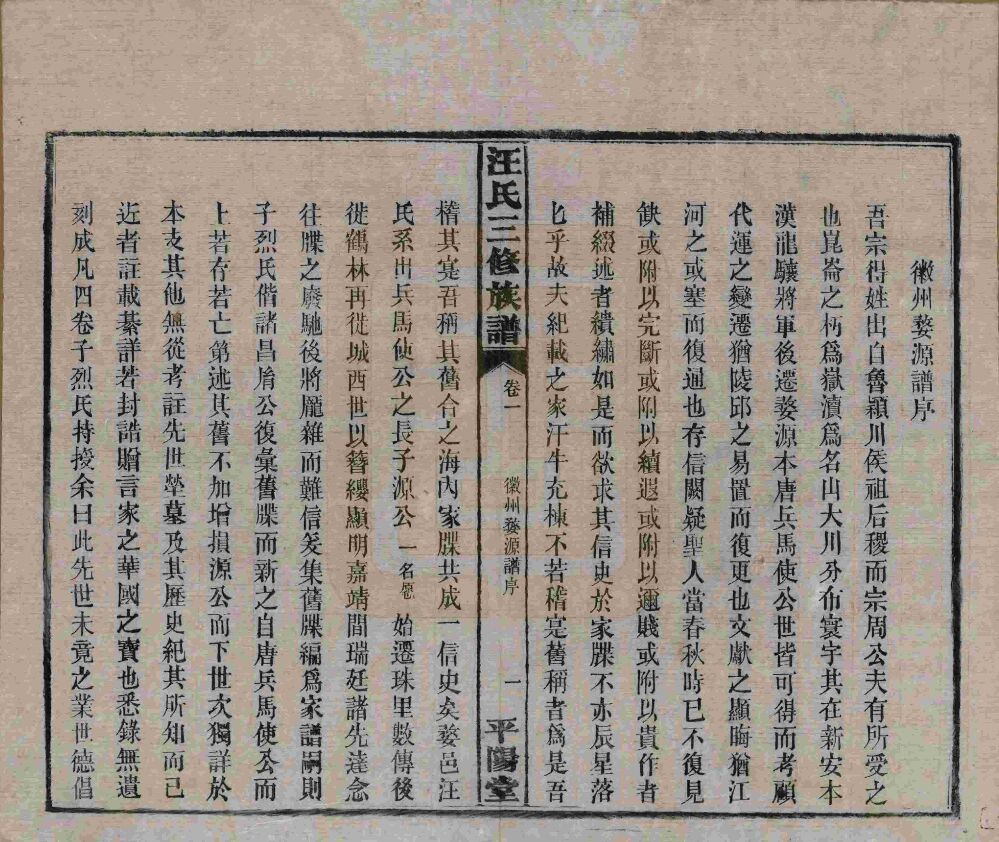 徽州婺源譜序
吾宗得姓出自魯潁川侯祖后稷而宗周公夫有所受之
也崑崙之柄爲嶽瀆爲名山大川分布寰宇其在新安本
漢龍驤將軍後遷婺源本唐兵馬使公世皆可得而考顧
代運之變遷猶陵邱之易置而復更也文獻之顯晦猶江
河之或塞而復通也存信闕疑聖人當春秋時已不復見
缺或附以完斷或附以續遐或附以邇賤或附以貴作者
補綴述者繢繡如是而欲求其信史於家牒不亦辰星落
匕乎故夫紀載之家汗牛充棟不若稽寔舊稱者爲是吾
汪氏三修族譜
卷一
徽州婺源譜序
一
平陽堂
稽其寔吾稱其舊合之海內家牒共成一信史矣婺邑汪
氏系出兵馬使公之長子源公一名 始遷珠里數傳後
徙鶴林再徙城西世以簪纓顯明嘉靖間瑞廷諸先達念
往牒之廢馳後將龐雜而難信爰集舊牒編爲家譜嗣則
子烈氏偕諸昌胤公復彙舊牒而新之自唐兵馬使公而
上若存若亡第述其舊不加增損源公而下世次獨詳於
本支其他無從考註先世塋墓及其歷史紀其所知而已
近者註載綦詳若封誥贈言家之華國之寶也悉錄無遺
刻成凡四卷子烈氏持授余曰此先世未竟之業世德倡